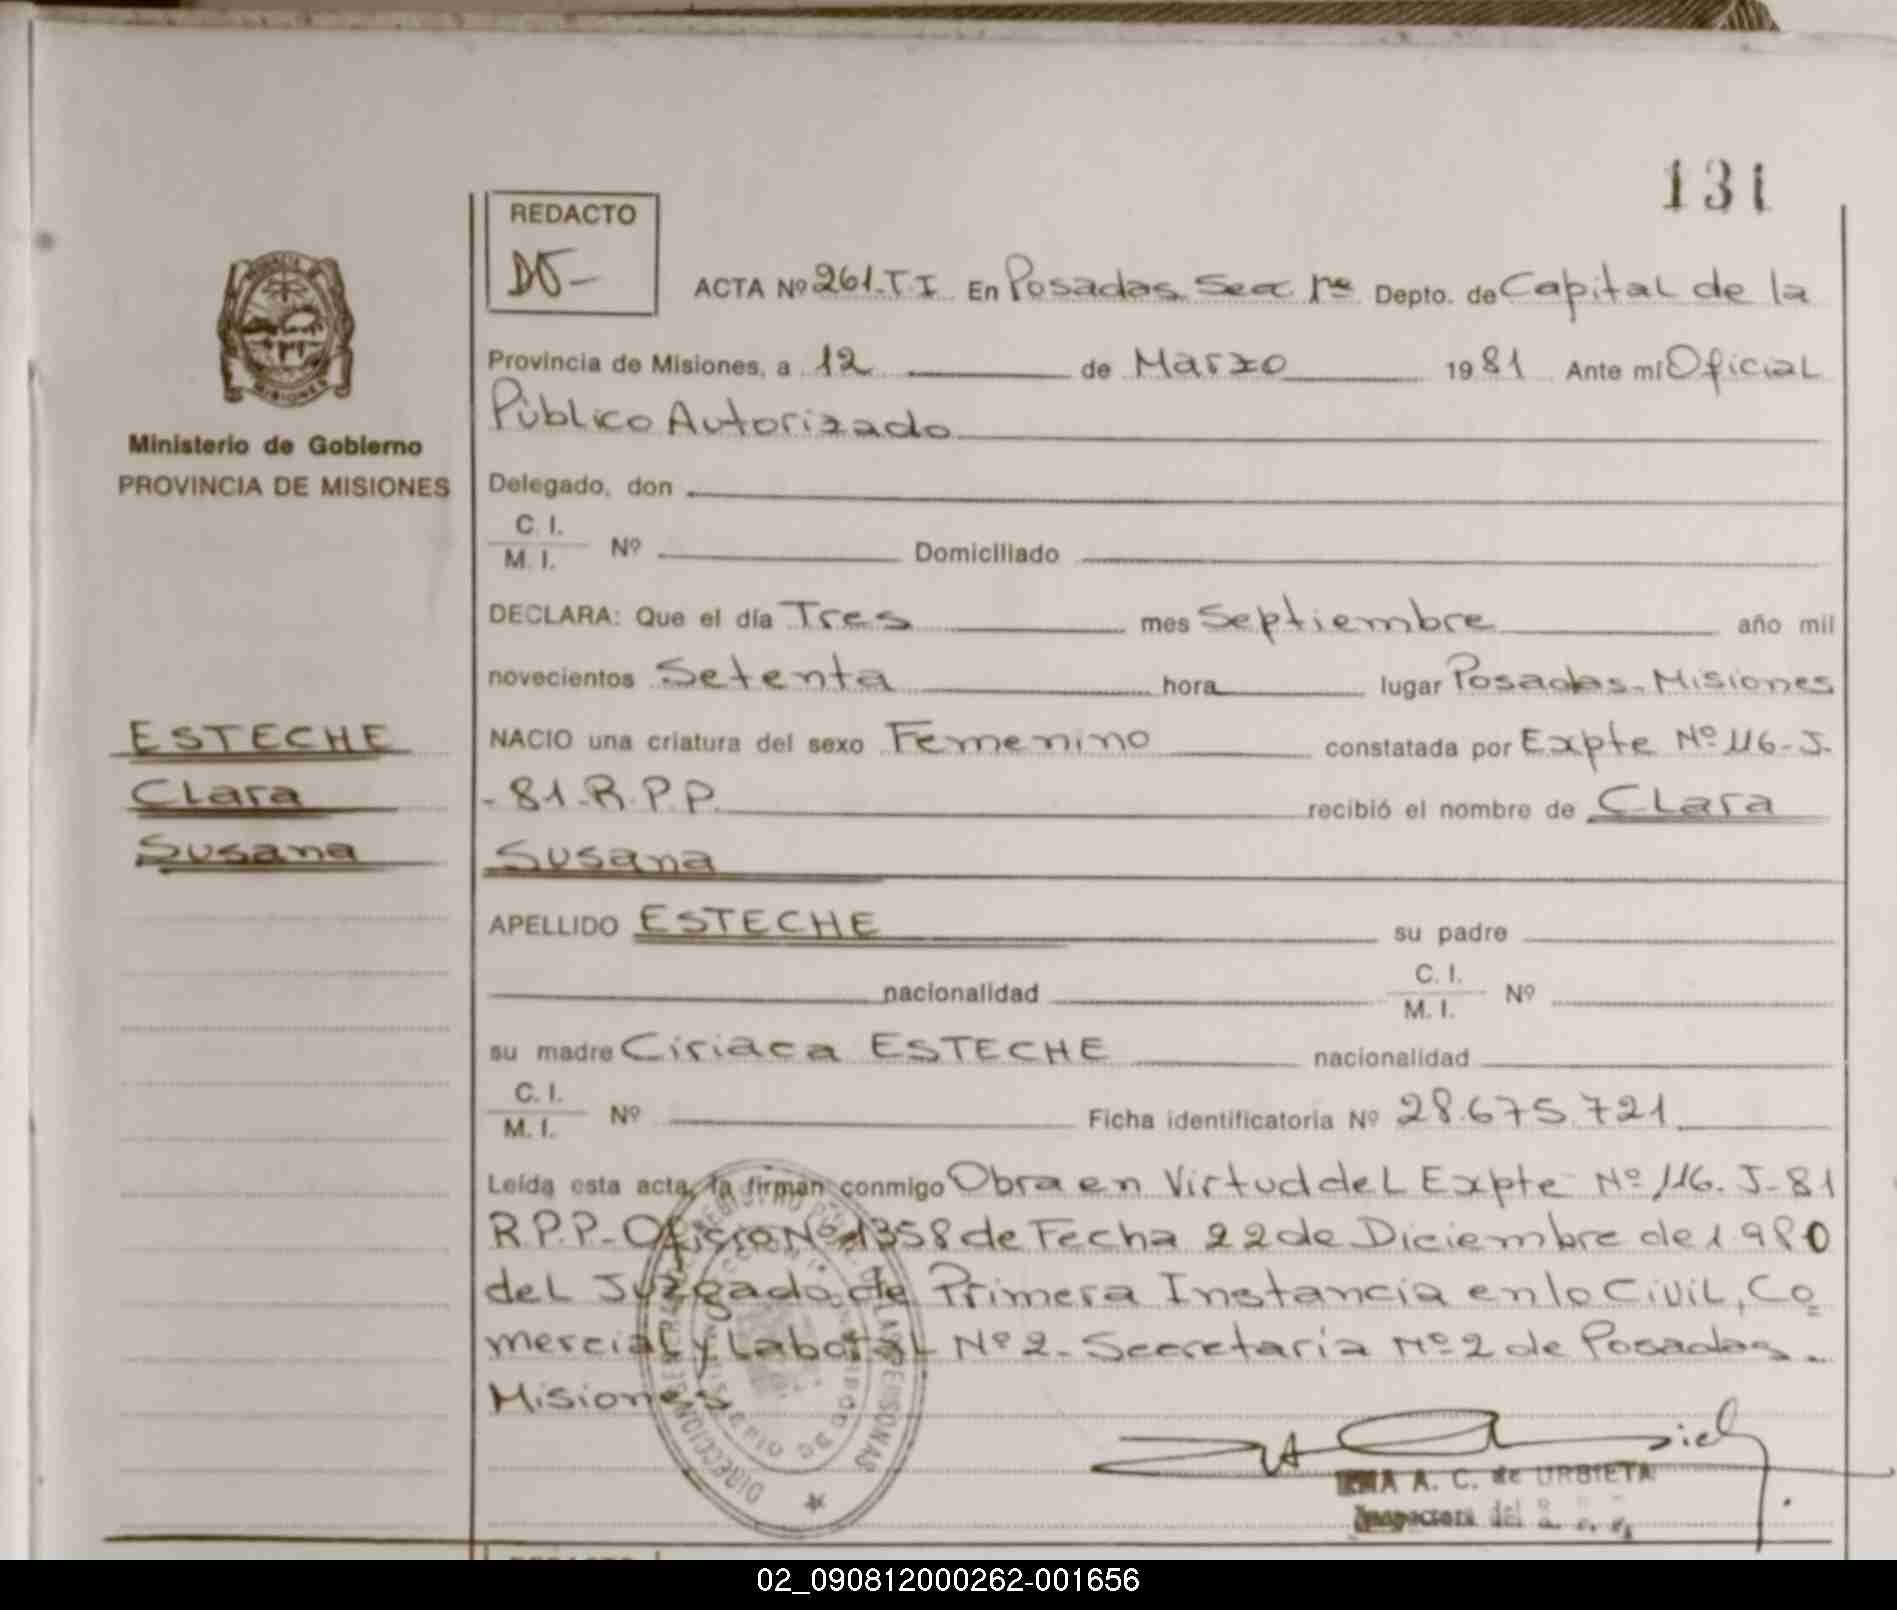 131
REDACTO
DJ-
ACTA Nº 261-T I En Posadas Secc 1ra Depto. de Capital de la
Provincia de Misiones, a 12 de Marzo 1981 Ante mí Oficial
Público Autorizado
Delegado, don
C. I.
M. I. Nº Domiciliado
DECLARA: Que el día Tres mes Septiembre año mil
novecientos Setenta hora lugar Posadas-Misiones
NACIO una criatura del sexo Femenino constatada por Expte Nº 116-J.
-81-R.P.P. recibió el nombre de Clara
Susana
APELLIDO ESTECHE su padre
nacionalidad C. I.
M. I. Nº
su madre Ciriaca ESTECHE nacionalidad
C. I.
M. I. Nº Ficha identificatoria Nº 28.675.721
Leída esta acta, la firman conmigo Obra en Virtud del Expte Nº 116. J-81
R.P.P-Oficio Nº 1358 de Fecha 22 de Diciembre de 1980
del Juzgado de Primera Instancia en lo Civil, Co
mercial y Laboral Nº 2-Secretaria Nº 2 de Posadas-
Misiones
A. C. de URBIETA
Inspectora del
Ministerio de Gobierno
PROVINCIA DE MISIONES
ESTECHE
Clara
Susana
02_090812000262-001656